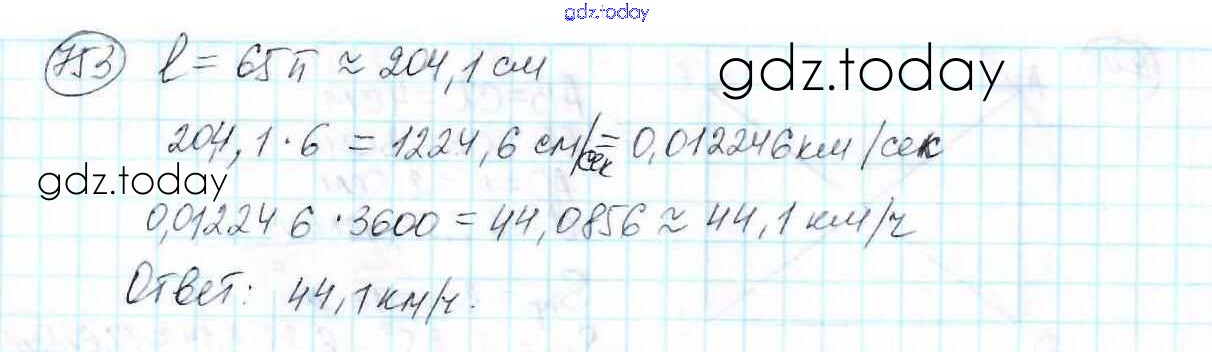 gdz.today
753 l = 65π ≈ 204,1 см
gdz.today
204,1 · 6 = 1224,6 см/сек = 0,012246 км/сек
gdz.today
0,012246 · 3600 = 44,0856 ≈ 44,1 км/ч
Ответ: 44,1 км/ч.